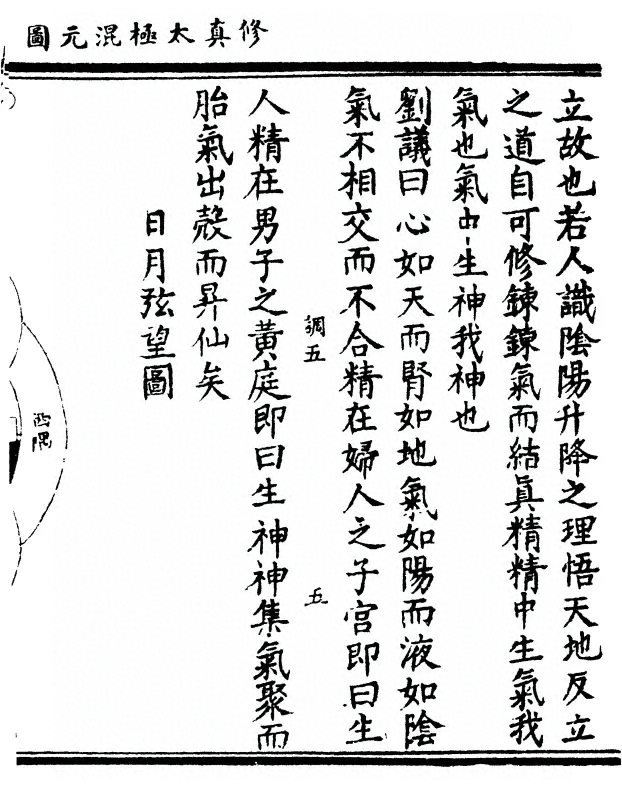 修真太極混元圖
立故也若人識陰陽升降之理悟天地反立
之道自可修鍊鍊氣而結眞精精中生氣我
氣也氣中生神我神也
劉議曰心如天而腎如地氣如陽而液如陰
氣不相交而不合精在婦人之子宮即曰生
調五
五
人精在男子之黃庭即曰生神神集氣聚而
胎氣出殼而昇仙矣
日月弦望圖
西隅